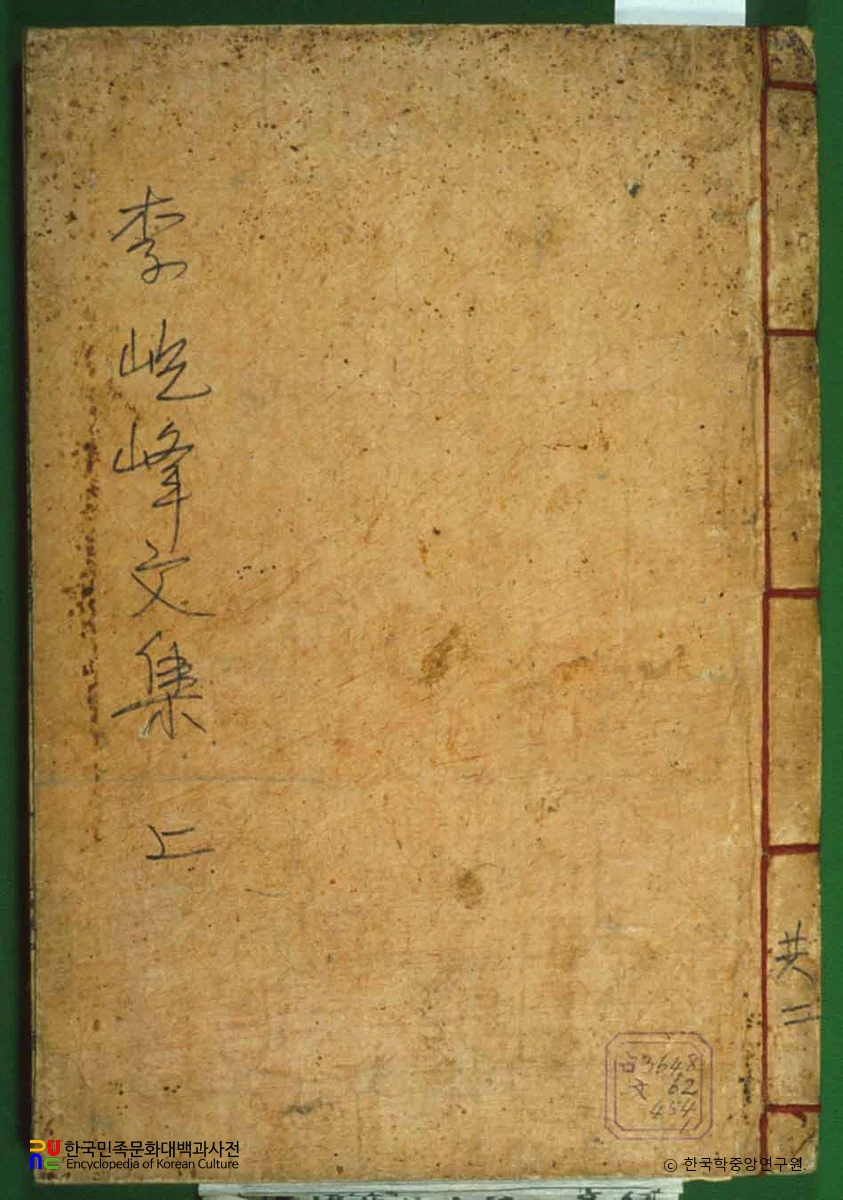 李屹峰文集 上
共二
古3648
文 62
454
한국민족문화대백과사전
Encyclopedia of Korean Culture
© 한국학중앙연구원